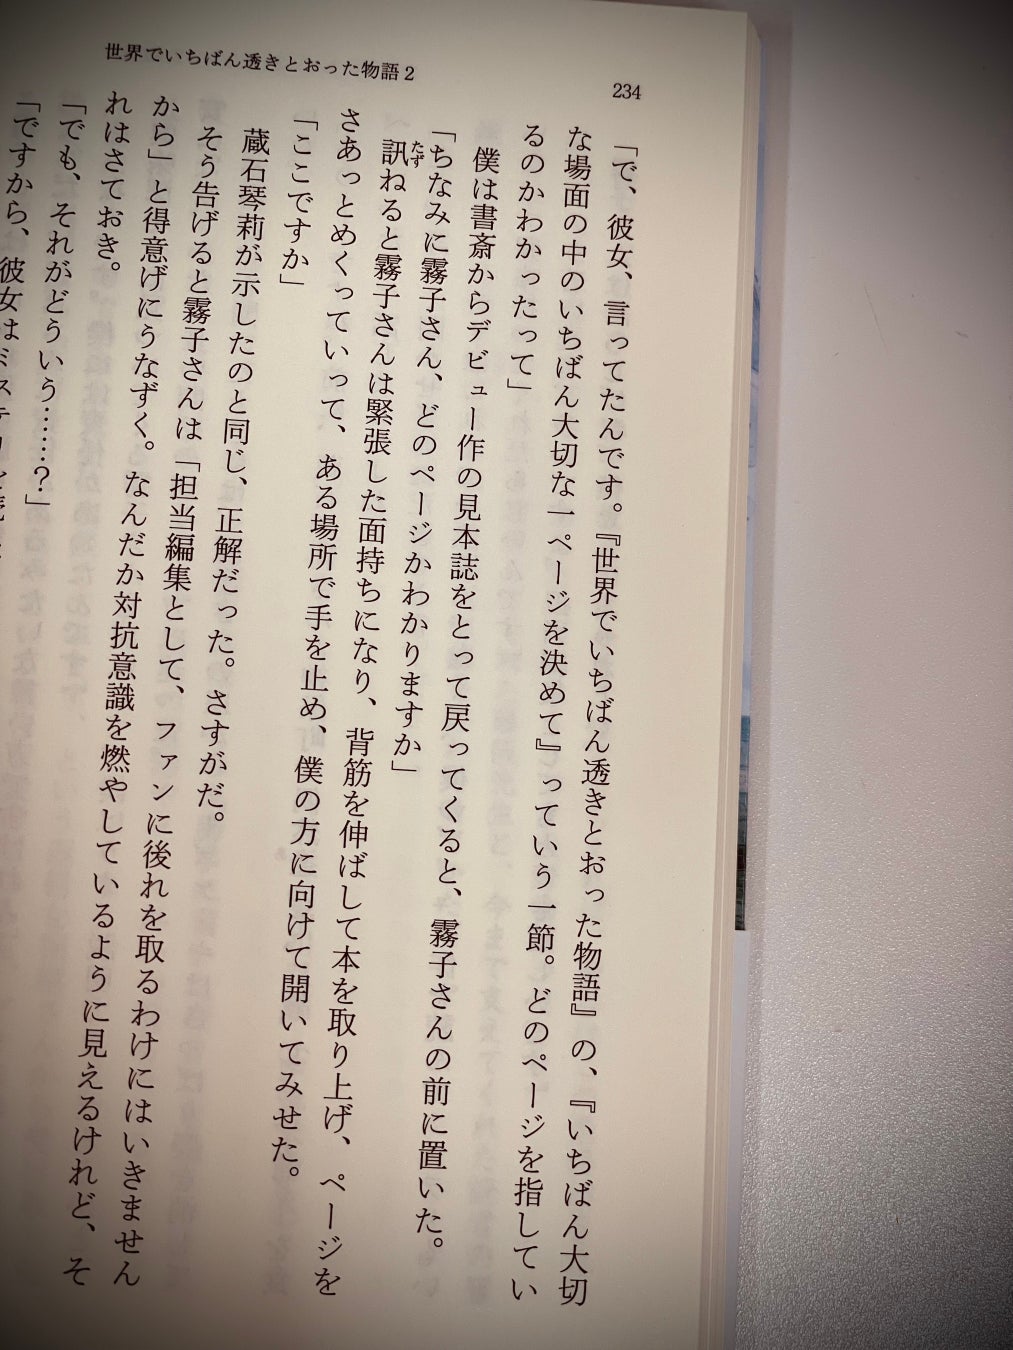 世界でいちばん透きとおった物語２
234
「で、彼女、言ってたんです。『世界でいちばん透きとおった物語』の、『いちばん大切
な場面の中のいちばん大切な一ページを決めて』っていう一節。どのページを指してい
るのかわかったって」
僕は書斎からデビュー作の見本誌をとって戻ってくると、霧子さんの前に置いた。
「ちなみに霧子さん、どのページかわかりますか」
訊ねると霧子さんは緊張した面持ちになり、背筋を伸ばして本を取り上げ、ページを
たず
さあっとめくっていって、ある場所で手を止め、僕の方に向けて開いてみせた。
「ここですか」
蔵石琴莉が示したのと同じ、正解だった。さすがだ。
そう告げると霧子さんは「担当編集として、ファンに後れを取るわけにはいきません
から」と得意げにうなずく。なんだか対抗意識を燃やしているように見えるけれど、そ
れはさておき。
「でも、それがどういう……？」
「ですから、彼女はミステリ